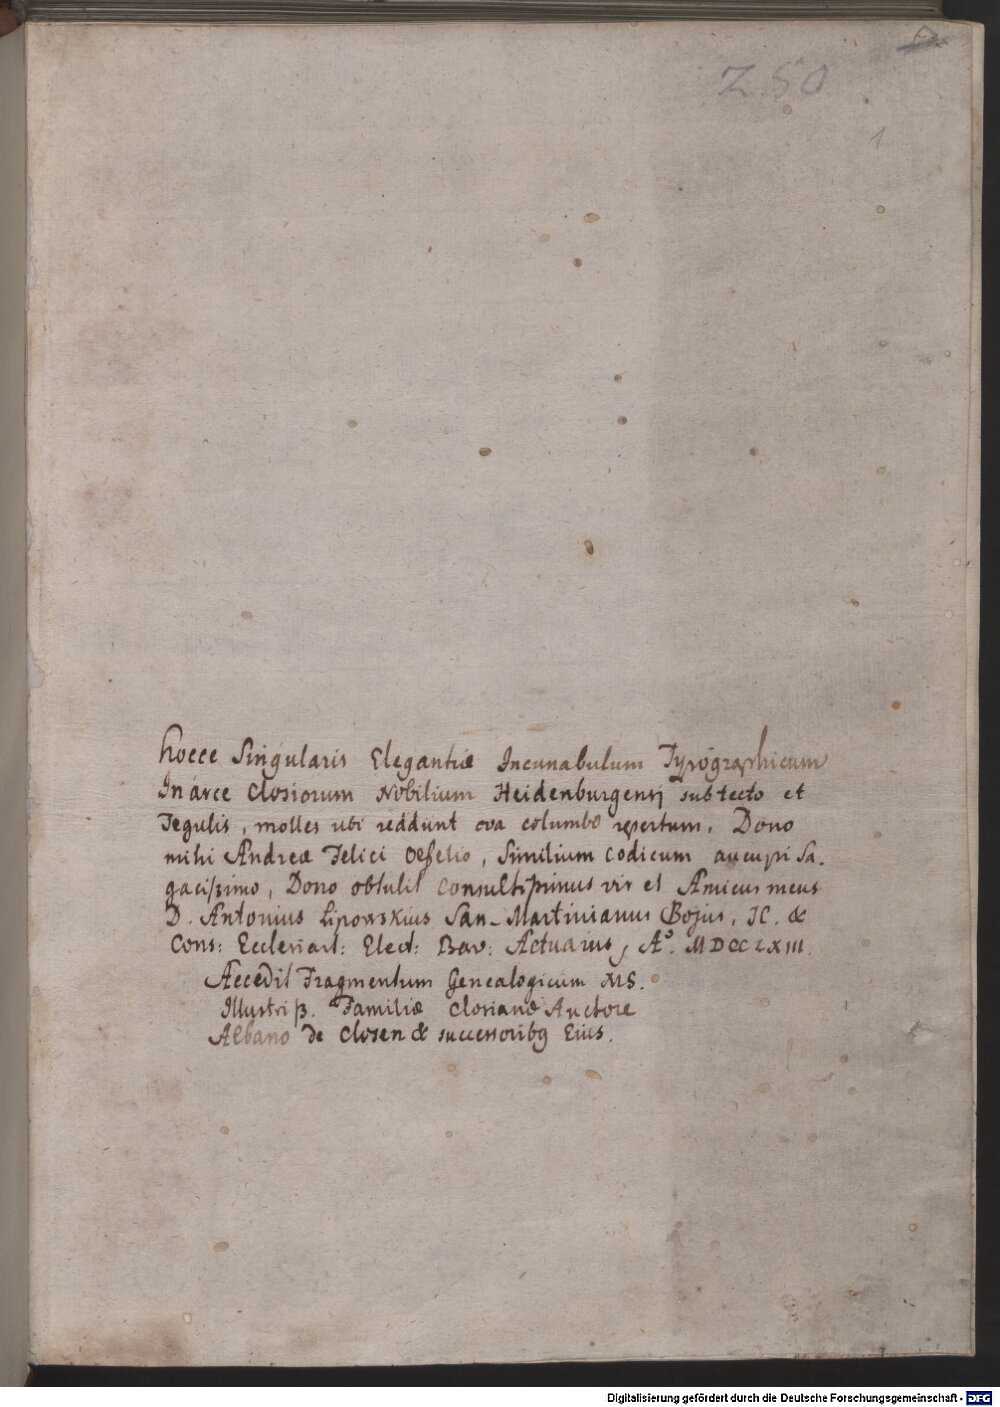 Z 50
1
hocce Singularis Elegantiæ Incunabulum Typographicum
In arce Closiorum Nobilium Heidenburgensj sub tecto et
Tegulis, molles ubi reddunt ova columbæ repertum, Dono
mihi Andreæ Felici Oefelio, Similium codicum aucupi Sa-
gacißimo, Dono obtulit Consultißimus vir et Amicus meus
D. Antonius Lipowskius San-Martinianus Bojus, IC. &
Cons: Ecclesiast: Elect: Bav: Actuarius, Aº. MDCCLXIII.
Accedit Fragmentum Genealogicum MS.
Illustriß. Familiæ Closianæ Auctore
Albano de Closen & successoribq Eius.
Digitalisierung gefördert durch die Deutsche Forschungsgemeinschaft - DFG